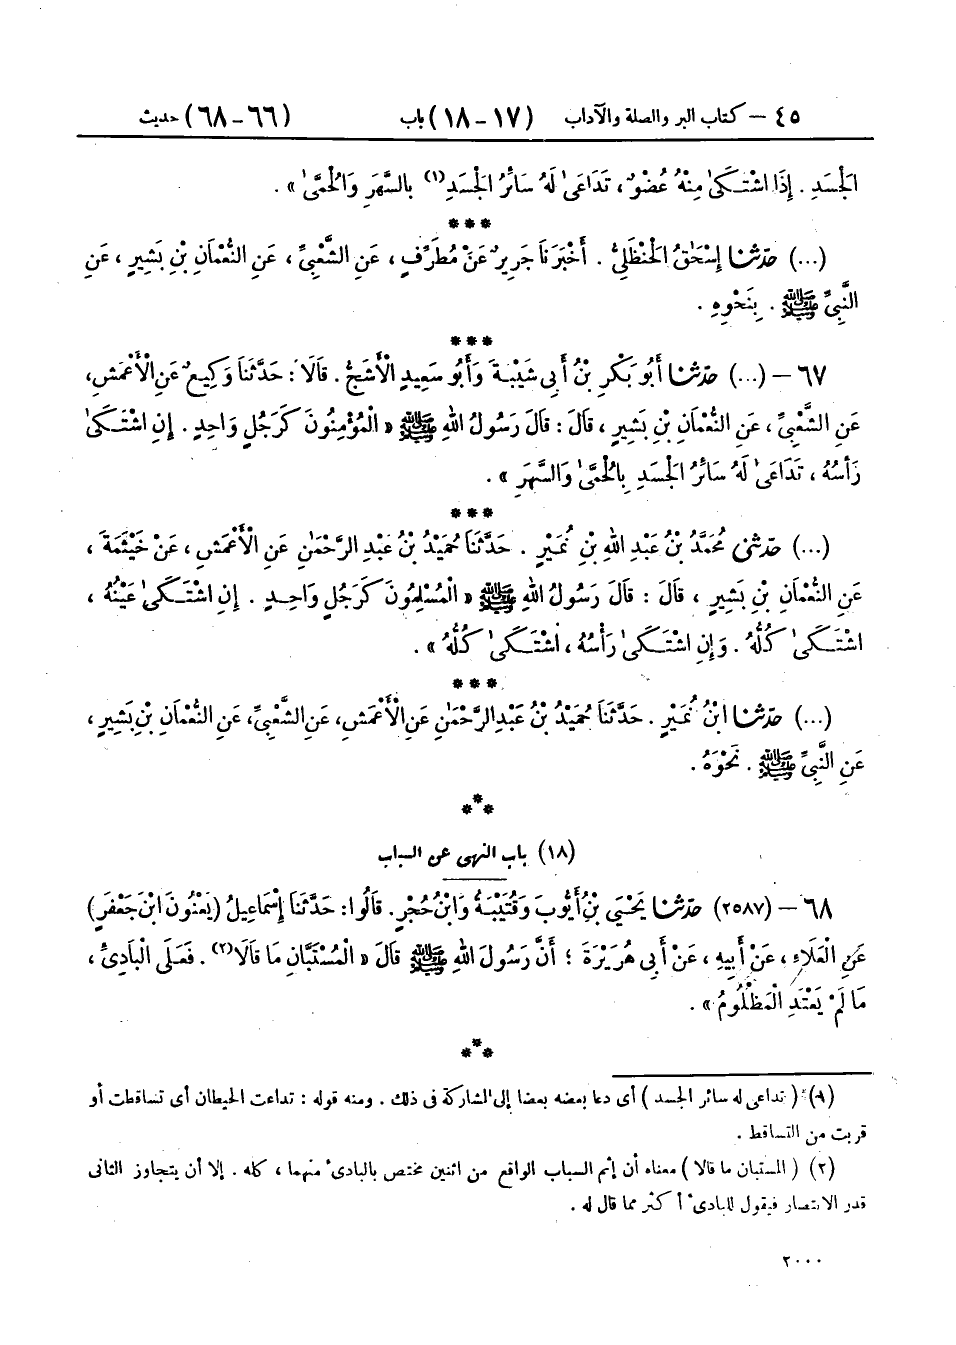 ٤٥ – كتاب البر والصلة والآداب (١٧-١٨) باب (٦٦-٦٨) حديث
الْجَسَدِ . إِذَا اشْتَكَىٰ مِنْهُ عُضْوٌ ، تَدَاعَىٰ لَهُ سَائِرُ الْجَسَدِ(١) بِالسَّهَرِ وَالْحُمَّىٰ » .
***
(...) حَدَّثَنَا إِسْحَٰقُ الْحَنْظَلِيُّ . أَخْبَرَنَا جَرِيرٌ عَنْ مُطَرِّفٍ ، عَنِ الشَّعْبِيِّ ، عَنِ النُّعْمَانِ بْنِ بَشِيرٍ ، عَنِ
النَّبِيِّ ﷺ . بِنَحْوِهِ .
***
٦٧ – (...) حَدَّثَنَا أَبُو بَكْرِ بْنُ أَبِي شَيْبَةَ وَأَبُو سَعِيدٍ الْأَشَجُّ . قَالَا : حَدَّثَنَا وَكِيعٌ عَنِ الْأَعْمَشِ ،
عَنِ الشَّعْبِيِّ ، عَنِ النُّعْمَانِ بْنِ بَشِيرٍ ، قَالَ : قَالَ رَسُولُ اللهِ ﷺ « الْمُؤْمِنُونَ كَرَجُلٍ وَاحِدٍ . إِنِ اشْتَكَىٰ
رَأْسُهُ ، تَدَاعَىٰ لَهُ سَائِرُ الْجَسَدِ بِالْحُمَّىٰ وَالسَّهَرِ » .
***
(...) حَدَّثَنِي مُحَمَّدُ بْنُ عَبْدِ اللهِ بْنِ نُمَيْرٍ . حَدَّثَنَا حُمَيْدُ بْنُ عَبْدِ الرَّحْمَٰنِ عَنِ الْأَعْمَشِ ، عَنْ خَيْثَمَةَ ،
عَنِ النُّعْمَانِ بْنِ بَشِيرٍ ، قَالَ : قَالَ رَسُولُ اللهِ ﷺ « الْمُسْلِمُونَ كَرَجُلٍ وَاحِدٍ . إِنِ اشْتَكَىٰ عَيْنُهُ ،
اشْتَكَىٰ كُلُّهُ . وَإِنِ اشْتَكَىٰ رَأْسُهُ ، اشْتَكَىٰ كُلُّهُ » .
***
(...) حَدَّثَنَا ابْنُ نُمَيْرٍ . حَدَّثَنَا حُمَيْدُ بْنُ عَبْدِ الرَّحْمَٰنِ عَنِ الْأَعْمَشِ ، عَنِ الشَّعْبِيِّ ، عَنِ النُّعْمَانِ بْنِ بَشِيرٍ ،
عَنِ النَّبِيِّ ﷺ . نَحْوَهُ .
***
(١٨) باب النهى عن السباب
٦٨ – (٢٥٨٧) حَدَّثَنَا يَحْيَىٰ بْنُ أَيُّوبَ وَقُتَيْبَةُ وَابْنُ حُجْرٍ . قَالُوا : حَدَّثَنَا إِسْمَاعِيلُ (يَعْنُونَ ابْنَ جَعْفَرٍ)
عَنِ الْعَلَاءِ ، عَنْ أَبِيهِ ، عَنْ أَبِي هُرَيْرَةَ ؛ أَنَّ رَسُولَ اللهِ ﷺ قَالَ « الْمُسْتَبَّانِ مَا قَالَا(٢) . فَعَلَى الْبَادِئِ ،
مَا لَمْ يَعْتَدِ الْمَظْلُومُ » .
***
(١) ( تداعى له سائر الجسد ) أى دعا بعضه بعضا إلى المشاركة فى ذلك . ومنه قوله : تداعت الحيطان أى تساقطت أو
قربت من التساقط .
(٢) ( المستبان ما قالا ) معناه أن إثم السباب الواقع من اثنين مختص بالبادئ منهما ، كله . إلا أن يتجاوز الثانى
قدر الانتصار فيقول للبادئ أكثر مما قال له .
٢٠٠٠